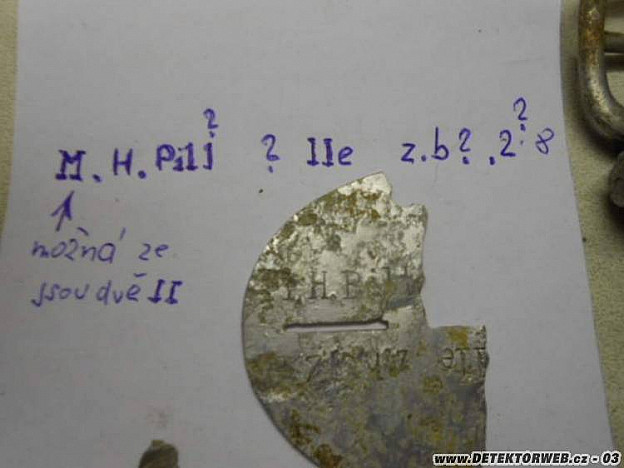 M. H. Pi11 ? IIe z.b?.2? 8
možná ze
jsou dvě II
.H.Pi11
IIe
www.DETEKTORWEB.cz - 03